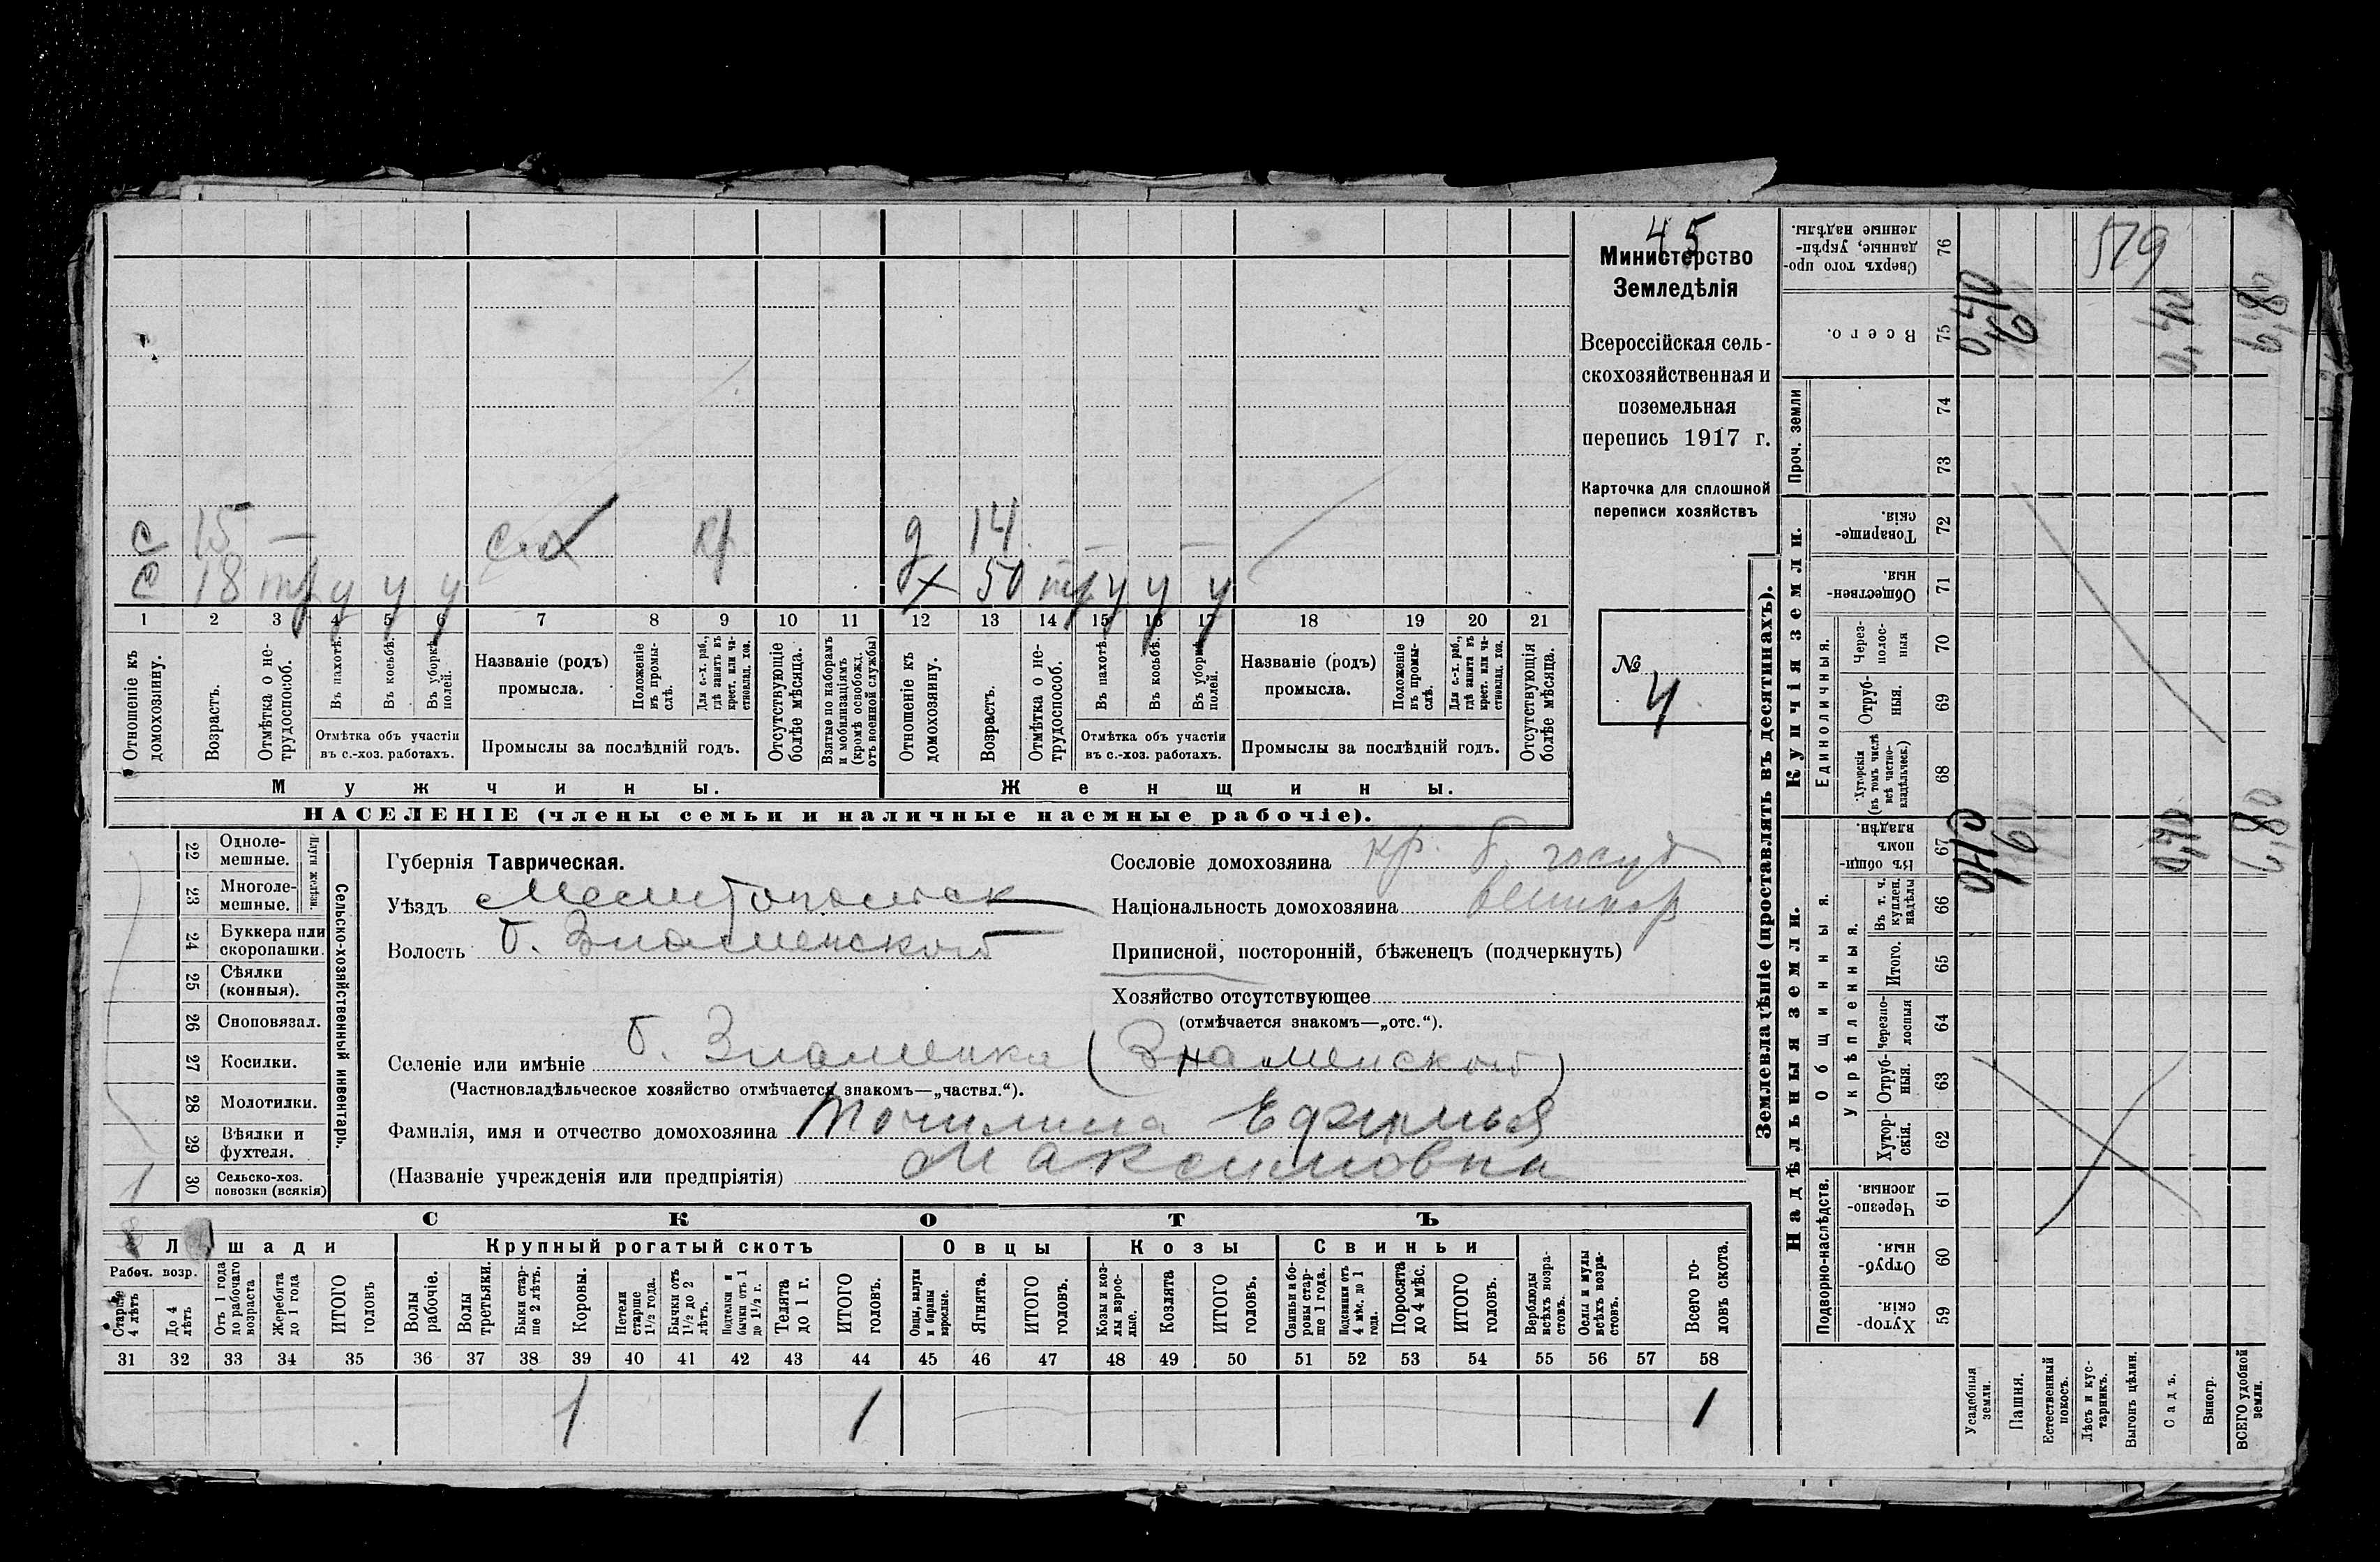 45
Министерство
Земледѣлія
Всероссійская сель-
скохозяйственная и
поземельная
перепись 1917 г.
Карточка для сплошной
переписи хозяйствъ
№ 4
с 15 — с.х кр
с 18 тр у у у
д 14 — —
х 50 тр у у у
1 2 3 4 5 6 7 8 9 10 11 12 13 14 15 16 17 18 19 20 21
Отношеніе къ домохозяину.
Возрастъ.
Отмѣтка о не-трудоспособ.
Въ пахотѣ.
Въ косьбѣ.
Въ уборкѣ полей.
Отмѣтка объ участіи
въ с.-хоз. работахъ.
Названіе (родъ)
промысла.
Положеніе въ промы-слѣ.
Для с.-х. раб., гдѣ занятъ въ крест. или ча-стновлад. хоз.
Промыслы за послѣдній годъ.
Отсутствующіе болѣе мѣсяца.
Взятые по наборамъ и мобилизаціямъ (кромѣ освобожд. отъ военной службы)
Отношеніе къ домохозяину.
Возрастъ.
Отмѣтка о не-трудоспособ.
Въ пахотѣ.
Въ косьбѣ.
Въ уборкѣ полей.
Отмѣтка объ участіи
въ с.-хоз. работахъ.
Названіе (родъ)
промысла.
Положеніе въ промы-слѣ.
Для с.-х. раб., гдѣ занята въ крест. или ча-стновлад. хоз.
Промыслы за послѣдній годъ.
Отсутствующія болѣе мѣсяца.
Мужчины. Женщины.
НАСЕЛЕНІЕ (члены семьи и наличные наемные рабочіе).
22 Одноле-мешные.
23 Многоле-мешные.
Плуги желѣзн.
24 Буккера или скоропашки.
25 Сѣялки (конныя).
26 Сноповязал.
27 Косилки.
28 Молотилки.
29 Вѣялки и фухтеля.
1 30 Сельско-хоз. повозки (всякія)
Сельско-хозяйственный инвентарь.
Губернія Таврическая.
Уѣздъ Мелитопольск
Волость б. Знаменской
Сословіе домохозяина кр. б. госуд
Національность домохозяина
Приписной, посторонній, бѣженецъ (подчеркнуть)
Хозяйство отсутствующее
(отмѣчается знакомъ—„отс.“).
Селеніе или имѣніе б. Знаменка (Знаменской)
(Частновладѣльческое хозяйство отмѣчается знакомъ—„частвл.“).
Фамилія, имя и отчество домохозяина Точилина Ефимья
(Названіе учрежденія или предпріятія) Максимовна
СКОТЪ
Лошади Крупный рогатый скотъ Овцы Козы Свиньи
Рабоч. возр.
Старше 4 лѣтъ
До 4 лѣтъ
Отъ 1 года до рабочаго возраста
Жеребята до 1 года
ИТОГО головъ
Волы рабочіе.
Волы третьяки.
Быки стар-ше 2 лѣтъ.
Коровы.
Нетели старше 1½ года.
Бычки отъ 1½ до 2 лѣтъ.
Подтелки и бычки отъ 1 до 1½ г.
Телята до 1 г.
ИТОГО головъ.
Овцы, валухи и бараны взрослые.
Ягнята.
ИТОГО головъ.
Козы и коз-лы взрос-лые.
Козлята
ИТОГО головъ.
Свиньи и бо-ровы стар-ше 1 года.
Подсвинки отъ 4 мѣс. до 1 года.
Поросята до 4 мѣс.
ИТОГО головъ.
Верблюды всѣхъ возра-стовъ.
Ослы и мулы всѣхъ возра-стовъ.
Всего го-ловъ скота.
31 32 33 34 35 36 37 38 39 40 41 42 43 44 45 46 47 48 49 50 51 52 53 54 55 56 57 58
1 1 1
Землевладѣніе (проставлять въ десятинахъ).
Надѣльныя земли. Купчія земли. Проч. земли
Подворно-наслѣдств.
Общинныя.
Укрѣпленныя.
Единоличныя.
Хутор-скія. 59
Отруб-ныя. 60
Черезпо-лосныя 61
Хутор-скія. 62
Отруб-ныя. 63
Черезпо-лосныя 64
Итого. 65
Въ т. ч. куплен. надѣлы 66
Въ общин-номъ владѣн. 67
Хуторскія (въ томъ числѣ всѣ частно-владѣльческ.) 68
Отруб-ныя. 69
Через-полос-ныя 70
Обществен-ныя. 71
Товарище-скія. 72
73
74
Всего. 75
Сверхъ того про-данные, укрѣп-ленные надѣлы. 76
Усадебныя земли.
Пашня.
Естественный покосъ.
Лѣсъ и кус-тарникъ.
Выгонъ цѣлин.
Садъ.
Виногр.
ВСЕГО удобной земли.
519
0,40
0,40
6,80
6,80